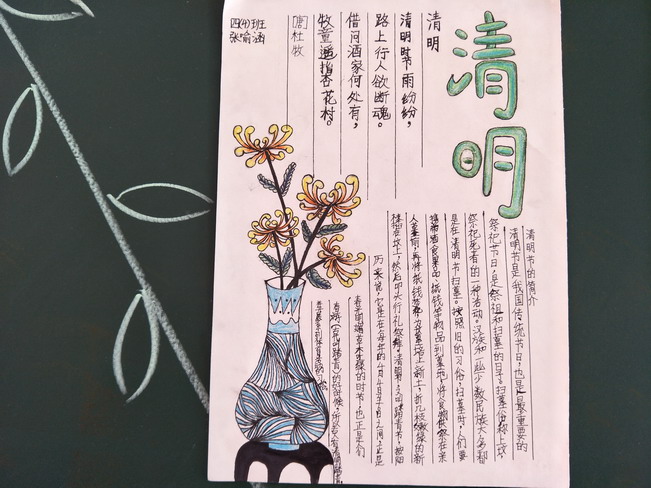 四(4)班
张喻涵
清明
清明
清明时节雨纷纷，
路上行人欲断魂。
借问酒家何处有，
牧童遥指杏花村。
[唐]杜牧
清明节的简介
清明节是我国传统节日，也是最重要的
祭祀节日，是祭祖和扫墓的日子。扫墓俗称上坟，
祭祀死者的一种活动。汉族和一些少数民族大多都
是在清明节扫墓。按照旧的习俗，扫墓时，人们要
携带酒食果品、纸钱等物品到墓地，将食物供祭在亲
人墓前，再将纸钱焚化，为坟墓培上新土，折几枝嫩绿的新
枝插在坟上，然后叩头行礼祭拜。清明节，又叫踏青节，按阳
历来说，它是在每年的4月4日至6日之间，正是
春光明媚草木吐绿的时节，也正是人们
春游(古代叫踏青)的好时候，所以古人有清明踏青